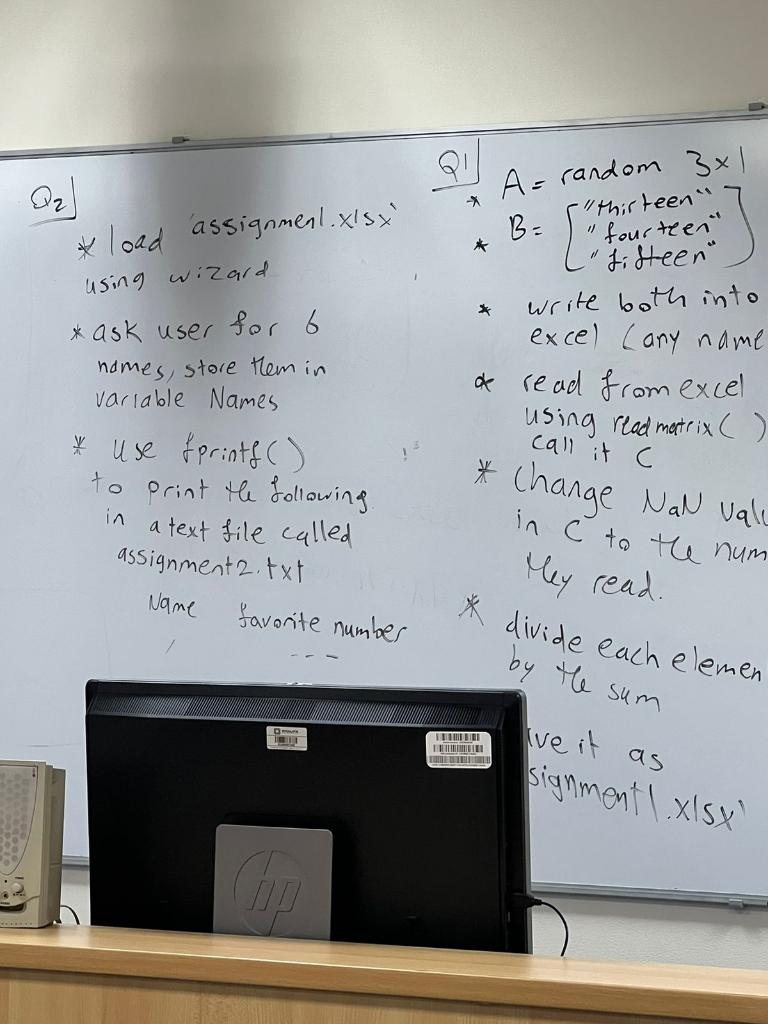 Q2
* load 'assignment1.xlsx'
using wizard
* ask user for 6
names, store them in
variable Names
* use fprintf()
to print the following
in a text file called
assignment2.txt
Name favorite number
---
Q1
* A = random 3x1
* B = ["thirteen"
"fourteen"
"fifteen"]
* write both into
excel (any name
* read from excel
using readmatrix()
call it C
* change NaN valu
in C to the num
they read.
* divide each elemen
by the sum
ve it as
signment1.xlsx'
hp